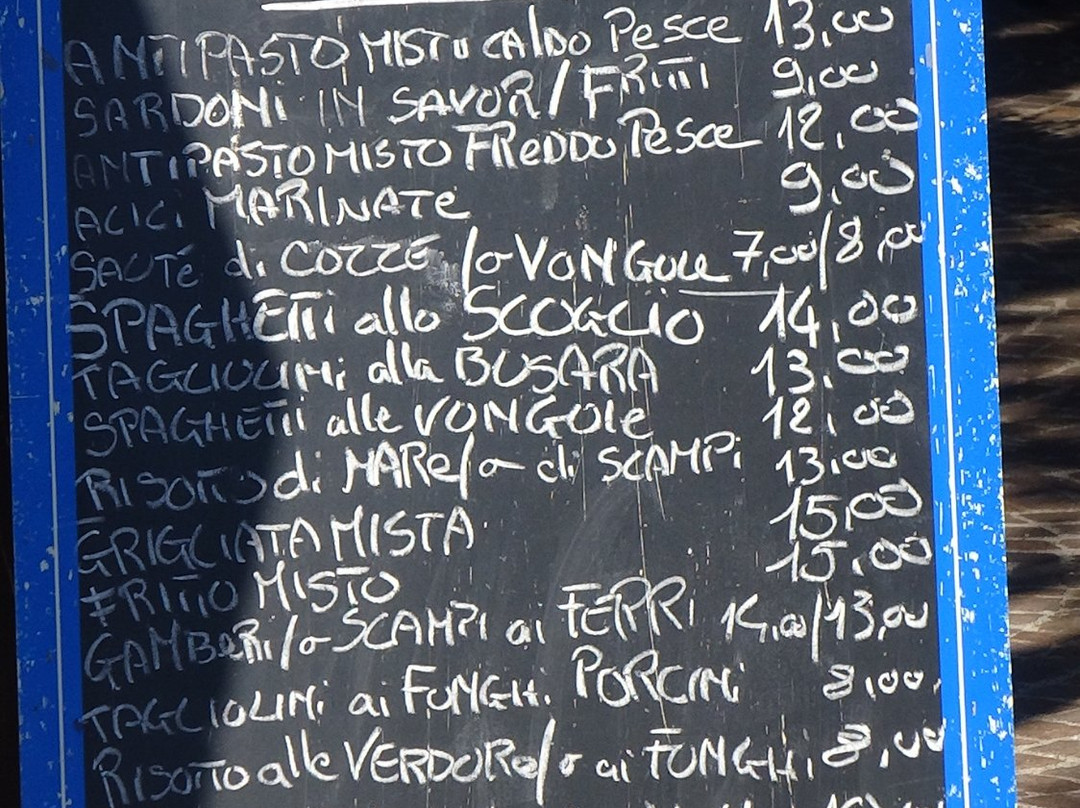 ANTIPASTO MISTO CALDO Pesce 13,00
SARDONI IN SAVOR/FRITTI 9,00
ANTIPASTO MISTO FREDDO Pesce 12,00
ALICI MARINATE 9,00
SAUTÉ di COZZE /o VONGOLE 7,00/8,00
SPAGHETTI allo SCOGLIO 14,00
TAGLIOLINI alla BUSARA 13,00
SPAGHETTI alle VONGOLE 12,00
RISOTTO di MARE/o di SCAMPI 13,00
GRIGLIATA MISTA 15,00
FRITTO MISTO 15,00
GAMBERI/o SCAMPI ai FERRI 14,00/13,00
TAGLIOLINI ai FUNGHI PORCINI 8,00
RISOTTO alle VERDURE/o ai FUNGHI 8,00